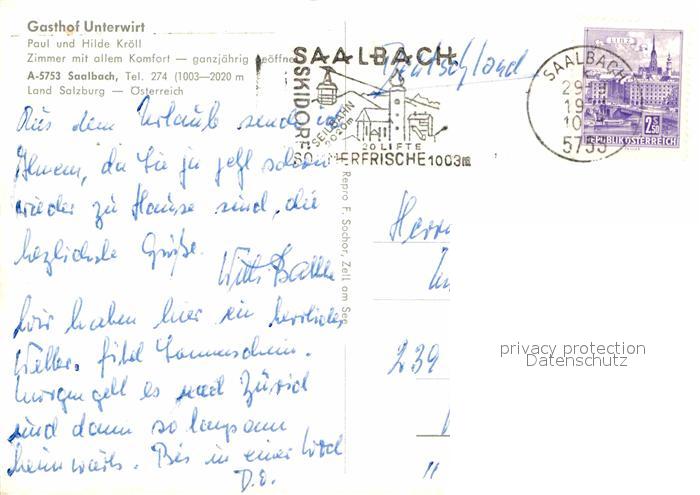 Gasthof Unterwirt
Paul und Hilde Kröll
Zimmer mit allem Komfort — ganzjährig geöffnet
A-5753 Saalbach, Tel. 274 (1003—2020 m
Land Salzburg — Österreich
SAALBACH
SKIDORF
SEILBAHN
2020m
20 LIFTE
SOMMERFRISCHE 1003m
SAALBACH
29
19
10
5753
LINZ
2.50
REPUBLIK ÖSTERREICH
Deutschland
Aus dem Urlaub sende
Ihnen, da Sie ja jetzt schon
wieder zu Hause sind, die
herzlichste Grüße.
Wir haben hier ein herrliches
Wetter, Sonnenschein.
Morgen geht es nach Zürich
und dann so langsam
heimwärts. Bis in einer Woche
D.E.
Repro F. Sochor, Zell am See
Herrn
239
privacy protection
Datenschutz